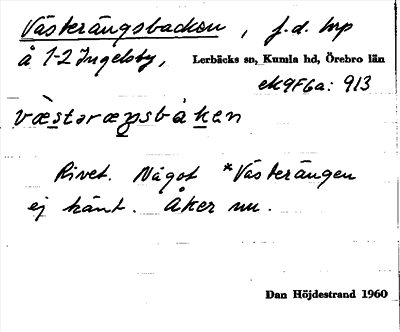 Västerängsbacken, f.d. lhp
å 1-2 Ingelsby, Lerbäcks sn, Kumla hd, Örebro län
ek 9F6a: 913
væ̀stəræŋsbàken
Rivet. Något *Västerängen
ej känt. Åker nu.
Dan Höjdestrand 1960